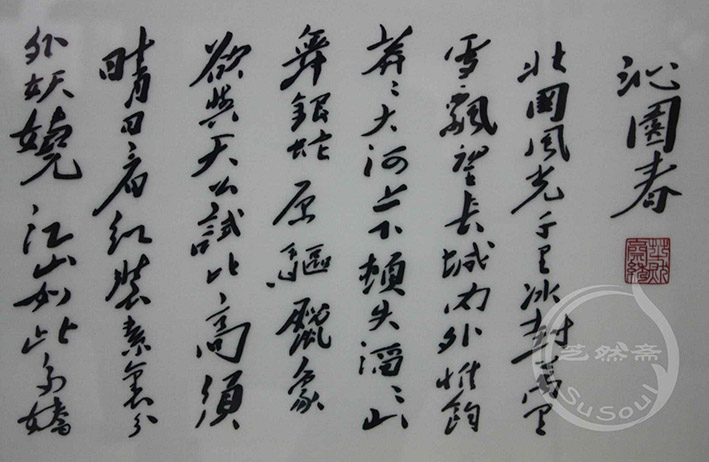 沁園春
北國風光千里冰封萬里
雪飄望長城內外惟餘
莽〻大河上下頓失滔〻山
舞銀蛇原驅臘象
欲與天公試比高須
晴日看紅裝素裹分
外妖嬈江山如此多嬌
艺然斋
SuSoul